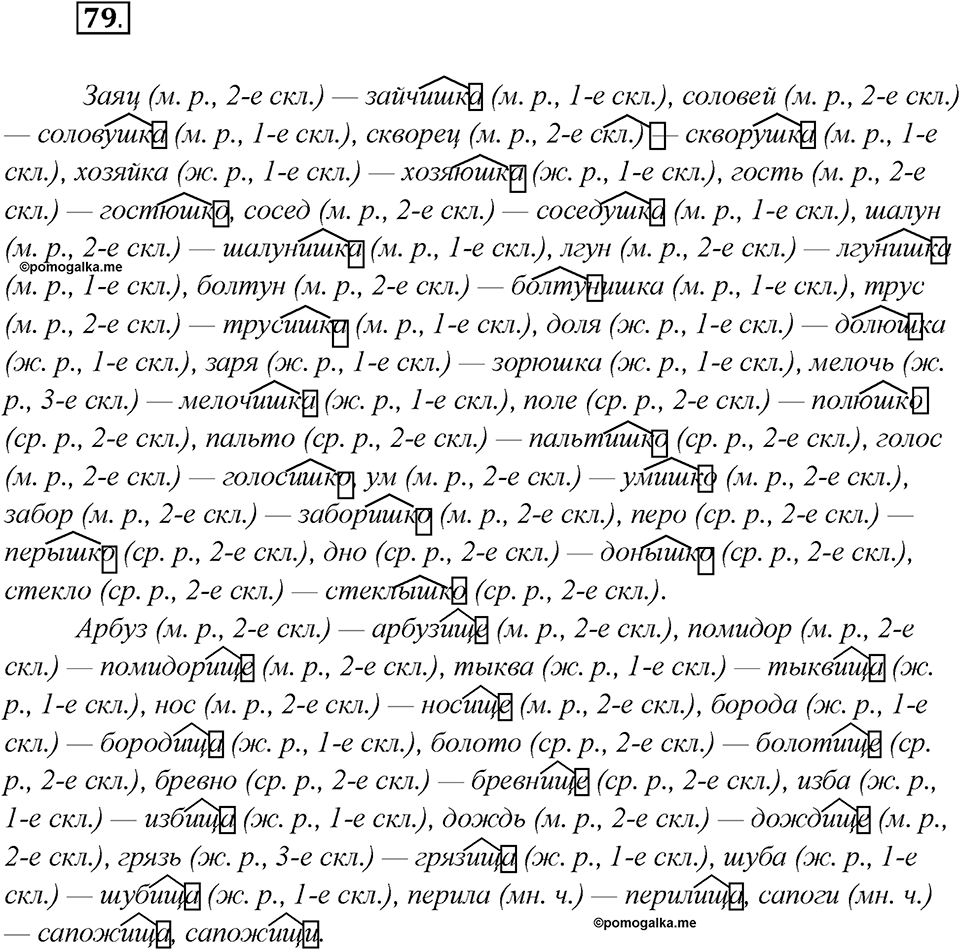 79.
Заяц (м. р., 2-е скл.) — зайчишка (м. р., 1-е скл.), соловей (м. р., 2-е скл.)
— соловушка (м. р., 1-е скл.), скворец (м. р., 2-е скл.) — скворушка (м. р., 1-е
скл.), хозяйка (ж. р., 1-е скл.) — хозяюшка (ж. р., 1-е скл.), гость (м. р., 2-е
скл.) — гостюшко, сосед (м. р., 2-е скл.) — соседушка (м. р., 1-е скл.), шалун
(м. р., 2-е скл.) — шалунишка (м. р., 1-е скл.), лгун (м. р., 2-е скл.) — лгунишка
©pomogalka.me
(м. р., 1-е скл.), болтун (м. р., 2-е скл.) — болтунишка (м. р., 1-е скл.), трус
(м. р., 2-е скл.) — трусишка (м. р., 1-е скл.), доля (ж. р., 1-е скл.) — долюшка
(ж. р., 1-е скл.), заря (ж. р., 1-е скл.) — зорюшка (ж. р., 1-е скл.), мелочь (ж.
р., 3-е скл.) — мелочишка (ж. р., 1-е скл.), поле (ср. р., 2-е скл.) — полюшко
(ср. р., 2-е скл.), пальто (ср. р., 2-е скл.) — пальтишко (ср. р., 2-е скл.), голос
(м. р., 2-е скл.) — голосишко, ум (м. р., 2-е скл.) — умишко (м. р., 2-е скл.),
забор (м. р., 2-е скл.) — заборишко (м. р., 2-е скл.), перо (ср. р., 2-е скл.) —
перышко (ср. р., 2-е скл.), дно (ср. р., 2-е скл.) — донышко (ср. р., 2-е скл.),
стекло (ср. р., 2-е скл.) — стеклышко (ср. р., 2-е скл.).
Арбуз (м. р., 2-е скл.) — арбузище (м. р., 2-е скл.), помидор (м. р., 2-е
скл.) — помидорище (м. р., 2-е скл.), тыква (ж. р., 1-е скл.) — тыквища (ж.
р., 1-е скл.), нос (м. р., 2-е скл.) — носище (м. р., 2-е скл.), борода (ж. р., 1-е
скл.) — бородища (ж. р., 1-е скл.), болото (ср. р., 2-е скл.) — болотище (ср.
р., 2-е скл.), бревно (ср. р., 2-е скл.) — бревнище (ср. р., 2-е скл.), изба (ж. р.,
1-е скл.) — избища (ж. р., 1-е скл.), дождь (м. р., 2-е скл.) — дождище (м. р.,
2-е скл.), грязь (ж. р., 3-е скл.) — грязища (ж. р., 1-е скл.), шуба (ж. р., 1-е
скл.) — шубища (ж. р., 1-е скл.), перила (мн. ч.) — перилища, сапоги (мн. ч.)
— сапожища, сапожищи.
©pomogalka.me